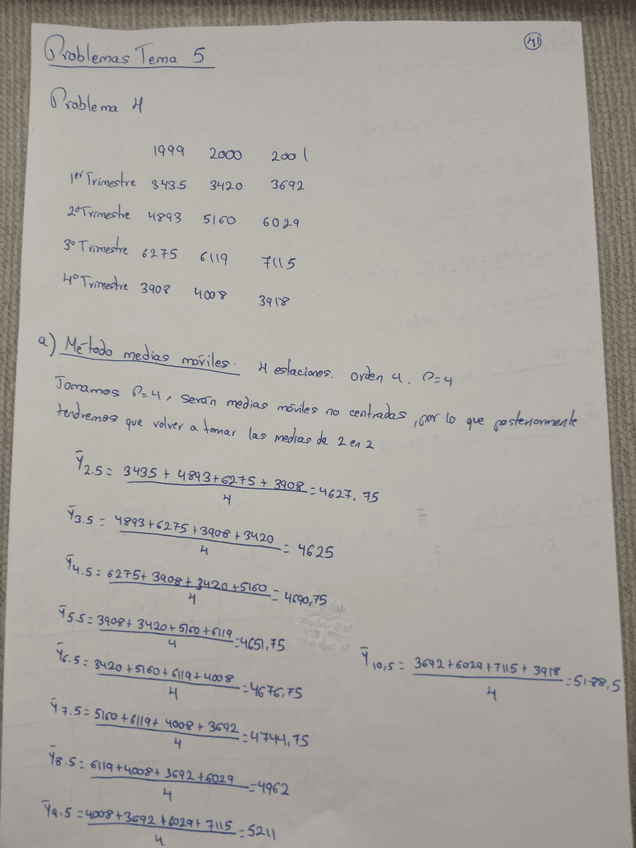 Problemas Tema 5
41
Problema 4
1999 2000 2001
1er Trimestre 3435 3420 3692
2º Trimestre 4893 5160 6029
3º Trimestre 6275 6119 7115
4º Trimestre 3908 4008 3918
a) Método medias móviles. 4 estaciones. Orden 4. P=4
Tomamos P=4, serán medias móviles no centradas, por lo que posteriormente
tendremos que volver a tomar las medias de 2 en 2
Ȳ2.5 = (3435 + 4893 + 6275 + 3908)/4 = 4627.75
Ȳ3.5 = (4893+6275+3908+3420)/4 = 4625
Ȳ4.5 = (6275+3908+3420+5160)/4 = 4690,75
Ȳ5.5 = (3908+3420+5160+6119)/4 = 4651,75
Ȳ6.5 = (3420+5160+6119+4008)/4 = 4676,75
Ȳ7.5 = (5160+6119+4008+3692)/4 = 4744,75
Ȳ8.5 = (6119+4008+3692+6029)/4 = 4962
Ȳ9.5 = (4008+3692+6029+7115)/4 = 5211
Ȳ10,5 = (3692+6029+7115+3918)/4 = 5188,5